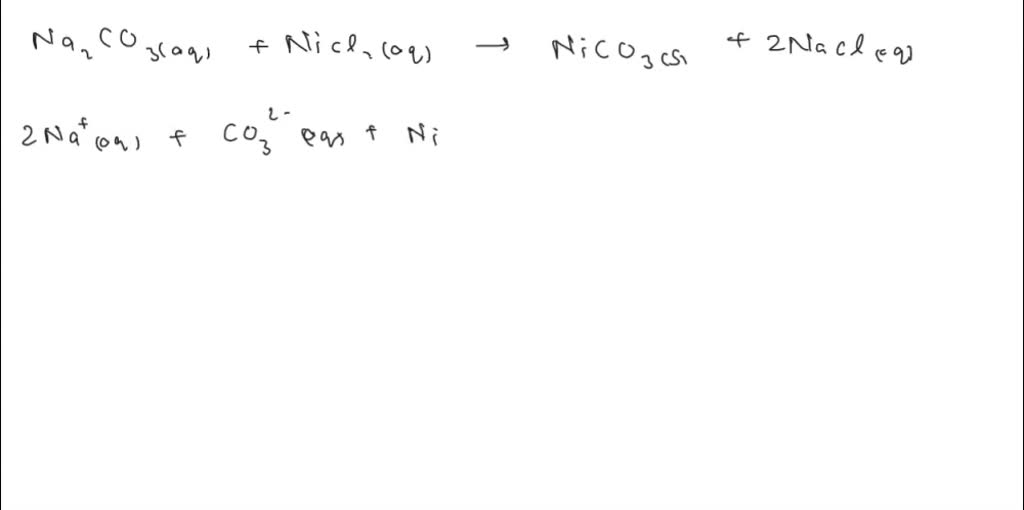 Na₂CO₃(aq) + NiCl₂(aq) → NiCO₃(s) + 2NaCl(aq)
2Na⁺(aq) + CO₃²⁻(aq) + Ni